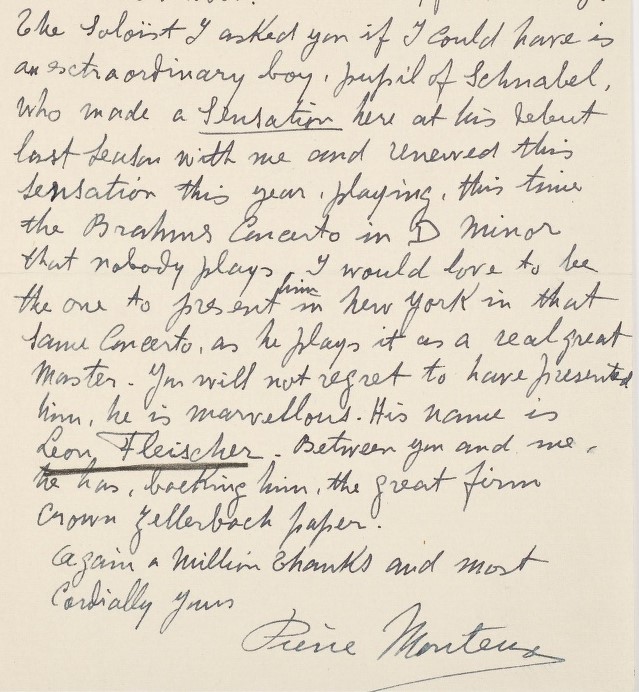 The Soloist I asked you if I could have is
an extraordinary boy, pupil of Schnabel,
who made a Sensation here at his debut
last season with me and renewed this
sensation this year, playing, this time
the Brahms Concerto in D Minor
that nobody plays I would love to be
the one to present him in New York in that
same Concerto, as he plays it as a real great
Master. You will not regret to have presented
him, he is marvellous. His name is
Leon Fleischer. Between you and me,
he has, backing him, the great firm
Crown Zellerback paper.
Again a Million thanks and most
Cordially yours
Pierre Monteux